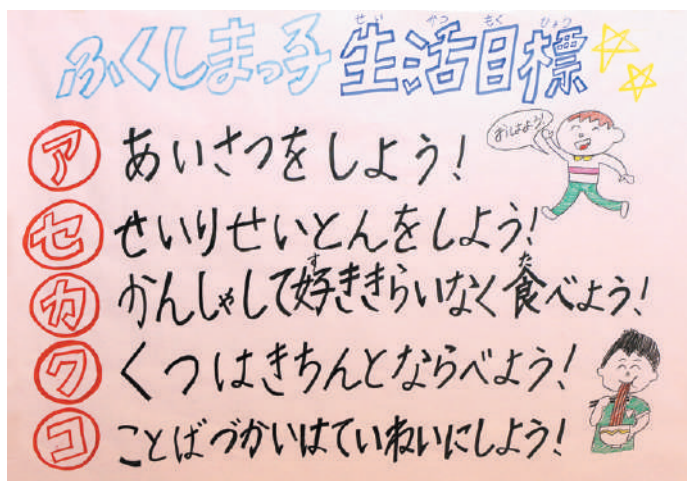 ふくしまっ子生活目標
せいかつもくひょう
おはよう!
ア あいさつをしよう!
セ せいりせいとんをしよう!
カ かんしゃして好ききらいなく食べよう!
す た
ク くつはきちんとならべよう!
コ ことばづかいはていねいにしよう!